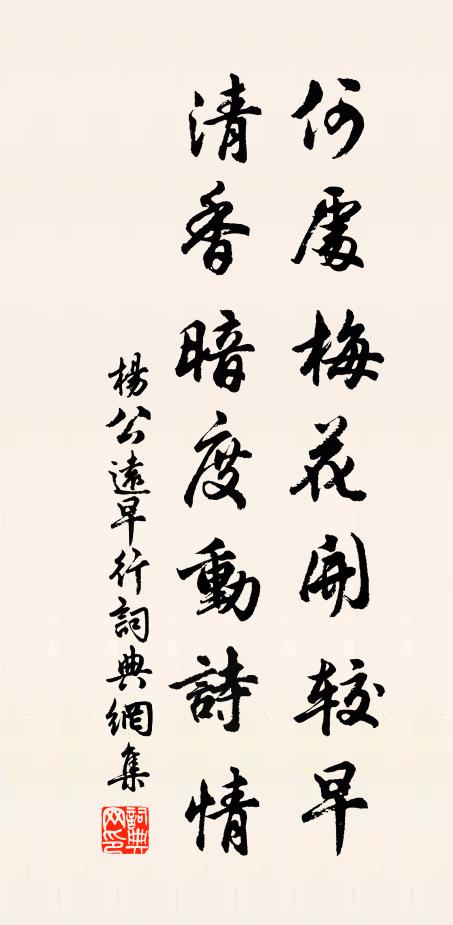 何處梅花開较早
清香暗度動詩情
楊公遠早行詞典網集
詞典网印